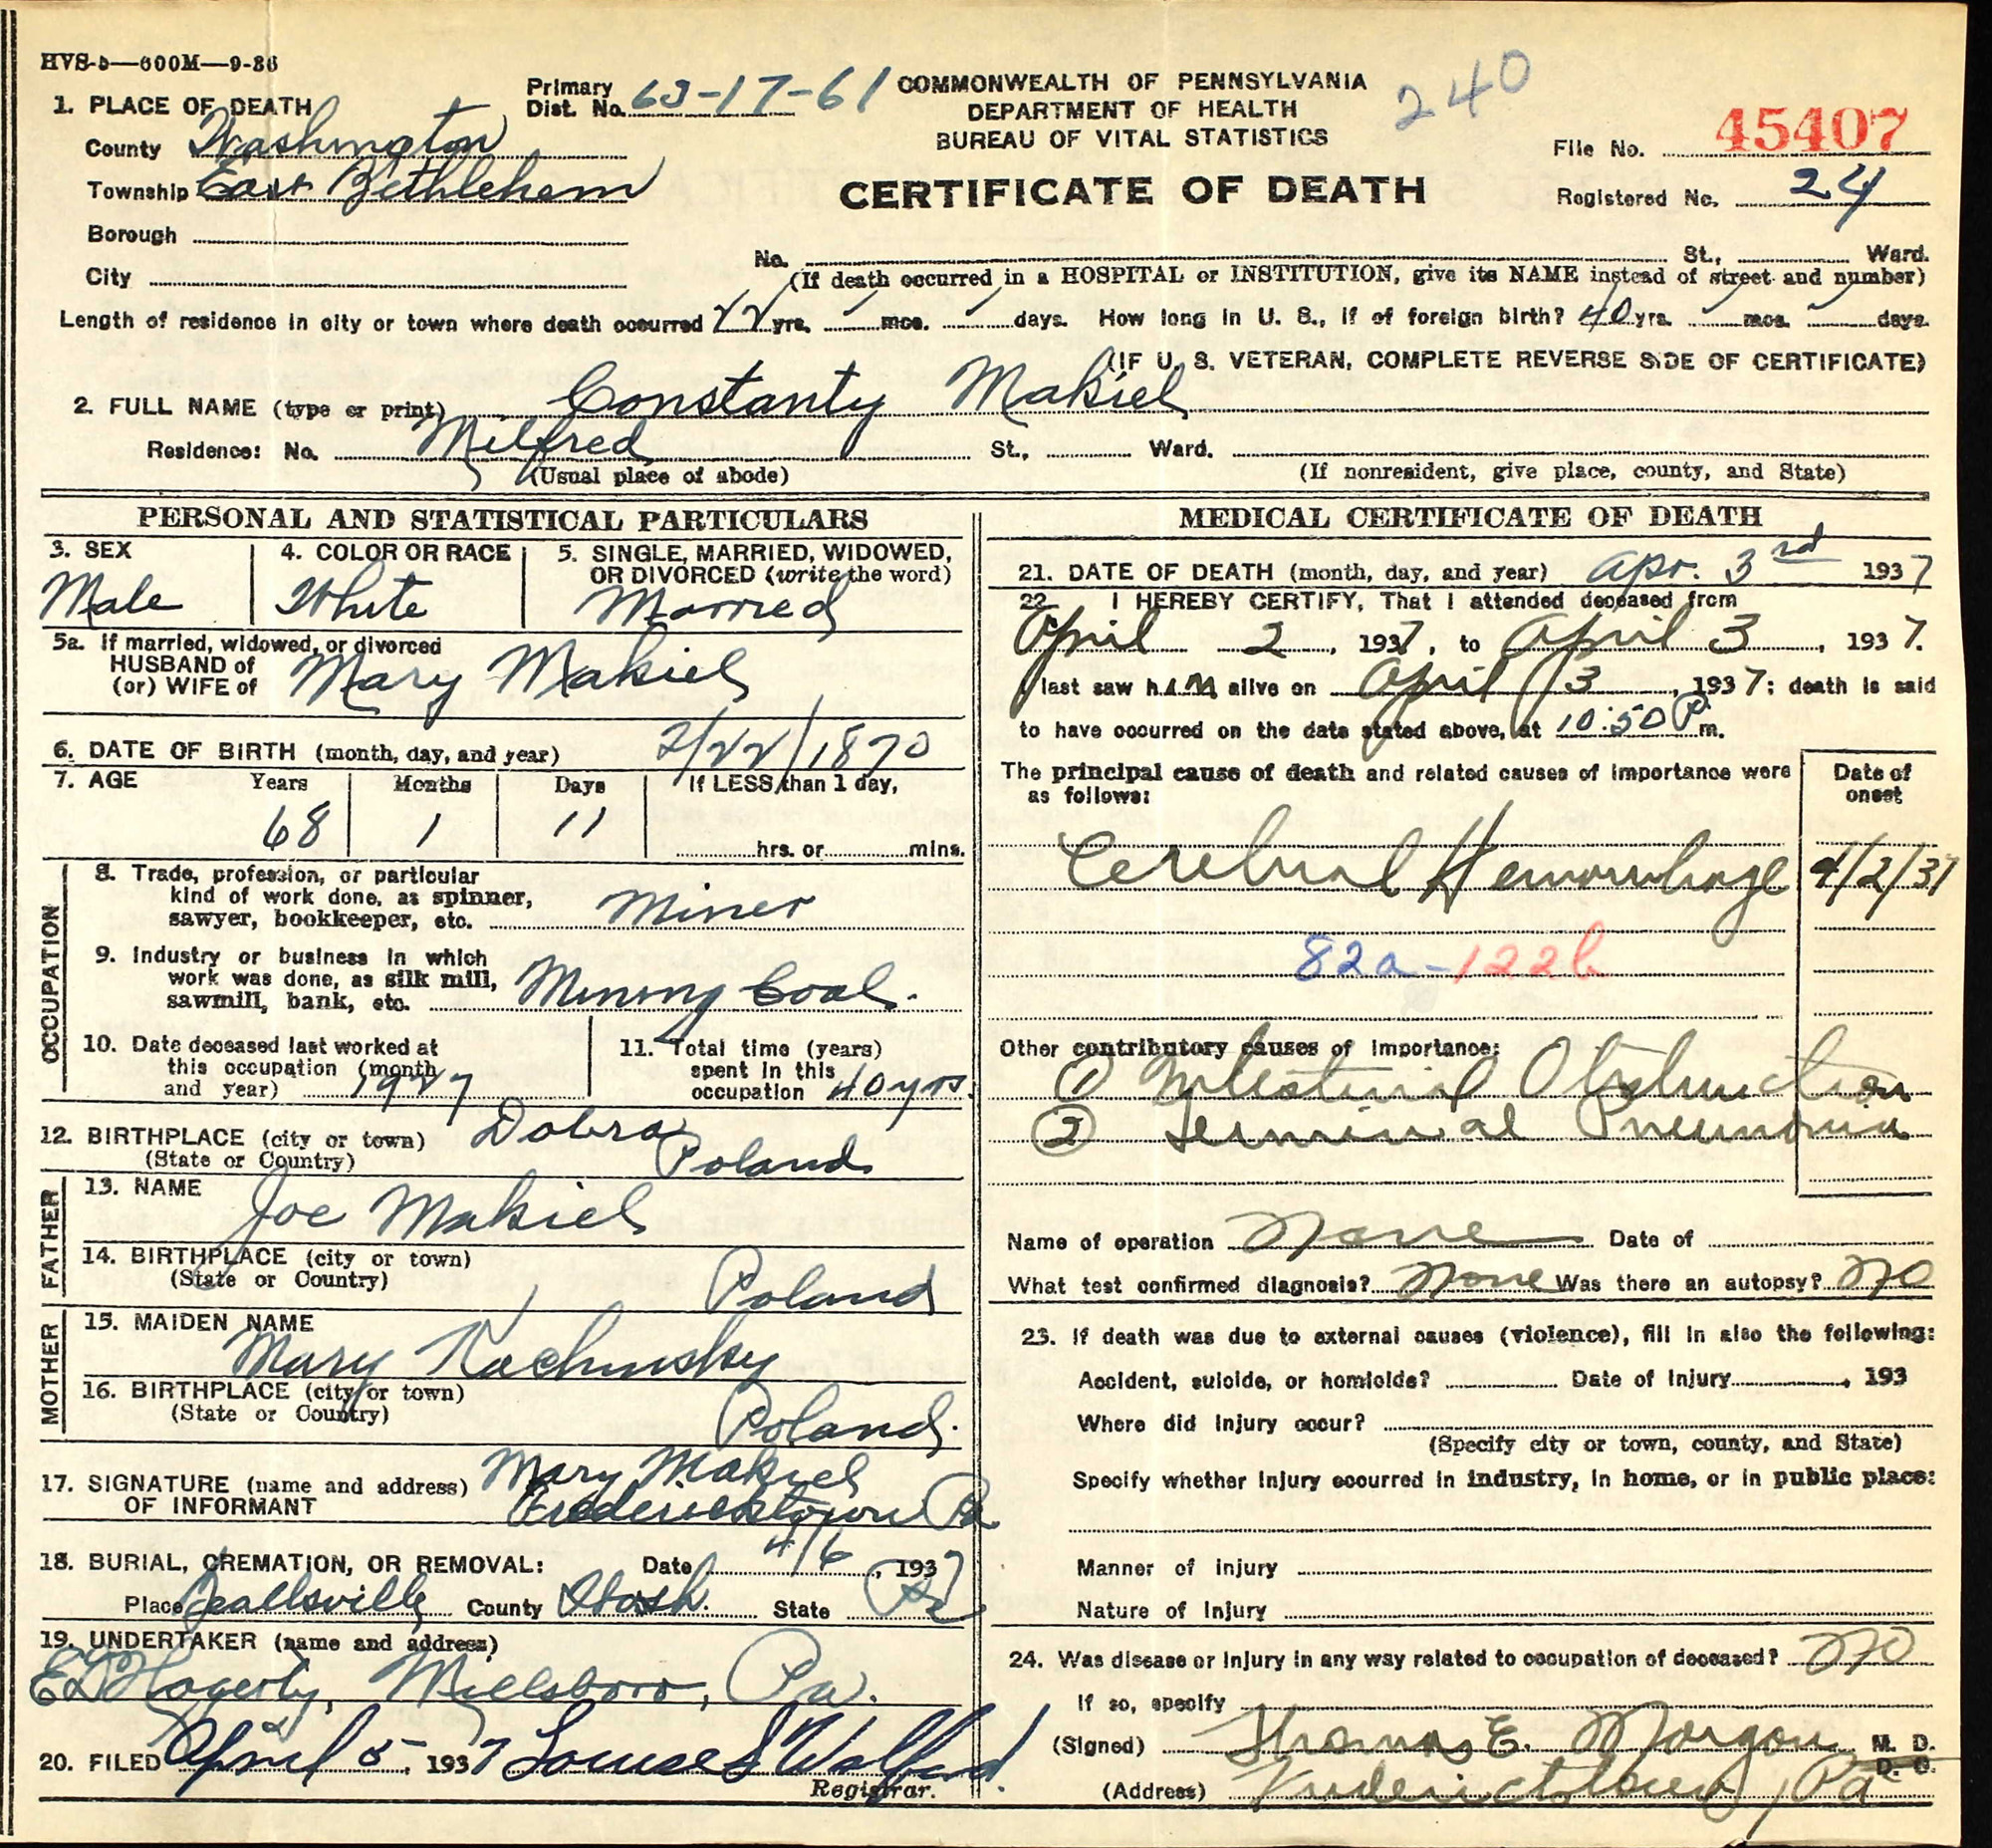 HVS-5—600M—9-36
Primary Dist. No. 63-17-61
COMMONWEALTH OF PENNSYLVANIA
DEPARTMENT OF HEALTH
BUREAU OF VITAL STATISTICS
240
CERTIFICATE OF DEATH
File No. 45407
Registered No. 24
1. PLACE OF DEATH
County Washington
Township East Bethlehem
Borough
City
No. St., Ward.
(If death occurred in a HOSPITAL or INSTITUTION, give its NAME instead of street and number)
Length of residence in city or town where death occurred 22 yrs. mos. days. How long in U. S., if of foreign birth? 40 yrs. mos. days.
(IF U. S. VETERAN, COMPLETE REVERSE SIDE OF CERTIFICATE)
2. FULL NAME (type or print) Constanty Makiel
Residence: No. Milfred St., Ward.
(Usual place of abode) (If nonresident, give place, county, and State)
PERSONAL AND STATISTICAL PARTICULARS
3. SEX 4. COLOR OR RACE 5. SINGLE, MARRIED, WIDOWED,
OR DIVORCED (write the word)
Male White Married
5a. If married, widowed, or divorced
HUSBAND of
(or) WIFE of Mary Makiel
6. DATE OF BIRTH (month, day, and year) 2/22/1870
7. AGE Years Months Days If LESS than 1 day,
68 1 11 hrs. or mins.
OCCUPATION
8. Trade, profession, or particular
kind of work done, as spinner,
sawyer, bookkeeper, etc. Miner
9. Industry or business in which
work was done, as silk mill,
sawmill, bank, etc. Mining Coal.
10. Date deceased last worked at
this occupation (month
and year) 1927
11. Total time (years)
spent in this
occupation 40 yrs.
12. BIRTHPLACE (city or town) Dobra
(State or Country) Poland
FATHER
13. NAME Joe Makiel
14. BIRTHPLACE (city or town)
(State or Country) Poland
MOTHER
15. MAIDEN NAME
Mary Kachinsky
16. BIRTHPLACE (city or town)
(State or Country) Poland.
17. SIGNATURE (name and address) Mary Makiel
OF INFORMANT Fredericktown Pa
18. BURIAL, CREMATION, OR REMOVAL: Date 4/6, 1937
Place Beallsville County Wash. State Pa
19. UNDERTAKER (name and address)
Hagerty, Millsboro, Pa.
20. FILED April 5, 1937 Louise S Walford
Registrar.
MEDICAL CERTIFICATE OF DEATH
21. DATE OF DEATH (month, day, and year) Apr. 3rd 1937
22. I HEREBY CERTIFY, That I attended deceased from
April 2, 1937, to April 3, 1937.
I last saw him alive on April 3, 1937; death is said
to have occurred on the date stated above, at 10:50 P m.
The principal cause of death and related causes of importance were
as follows:
Date of
onset
Cerebral Hemorrhage 4/2/37
82a-122b
Other contributory causes of importance:
① Intestinal Obstruction
② Terminal Pneumonia
Name of operation None Date of
What test confirmed diagnosis? None Was there an autopsy? No
23. If death was due to external causes (violence), fill in also the following:
Accident, suicide, or homicide? Date of injury , 193
Where did injury occur?
(Specify city or town, county, and State)
Specify whether injury occurred in industry, in home, or in public place:
Manner of injury
Nature of injury
24. Was disease or injury in any way related to occupation of deceased? No
If so, specify
(Signed) Thomas E. Morgan M. D.
D. O.
(Address) Fredericktown, Pa